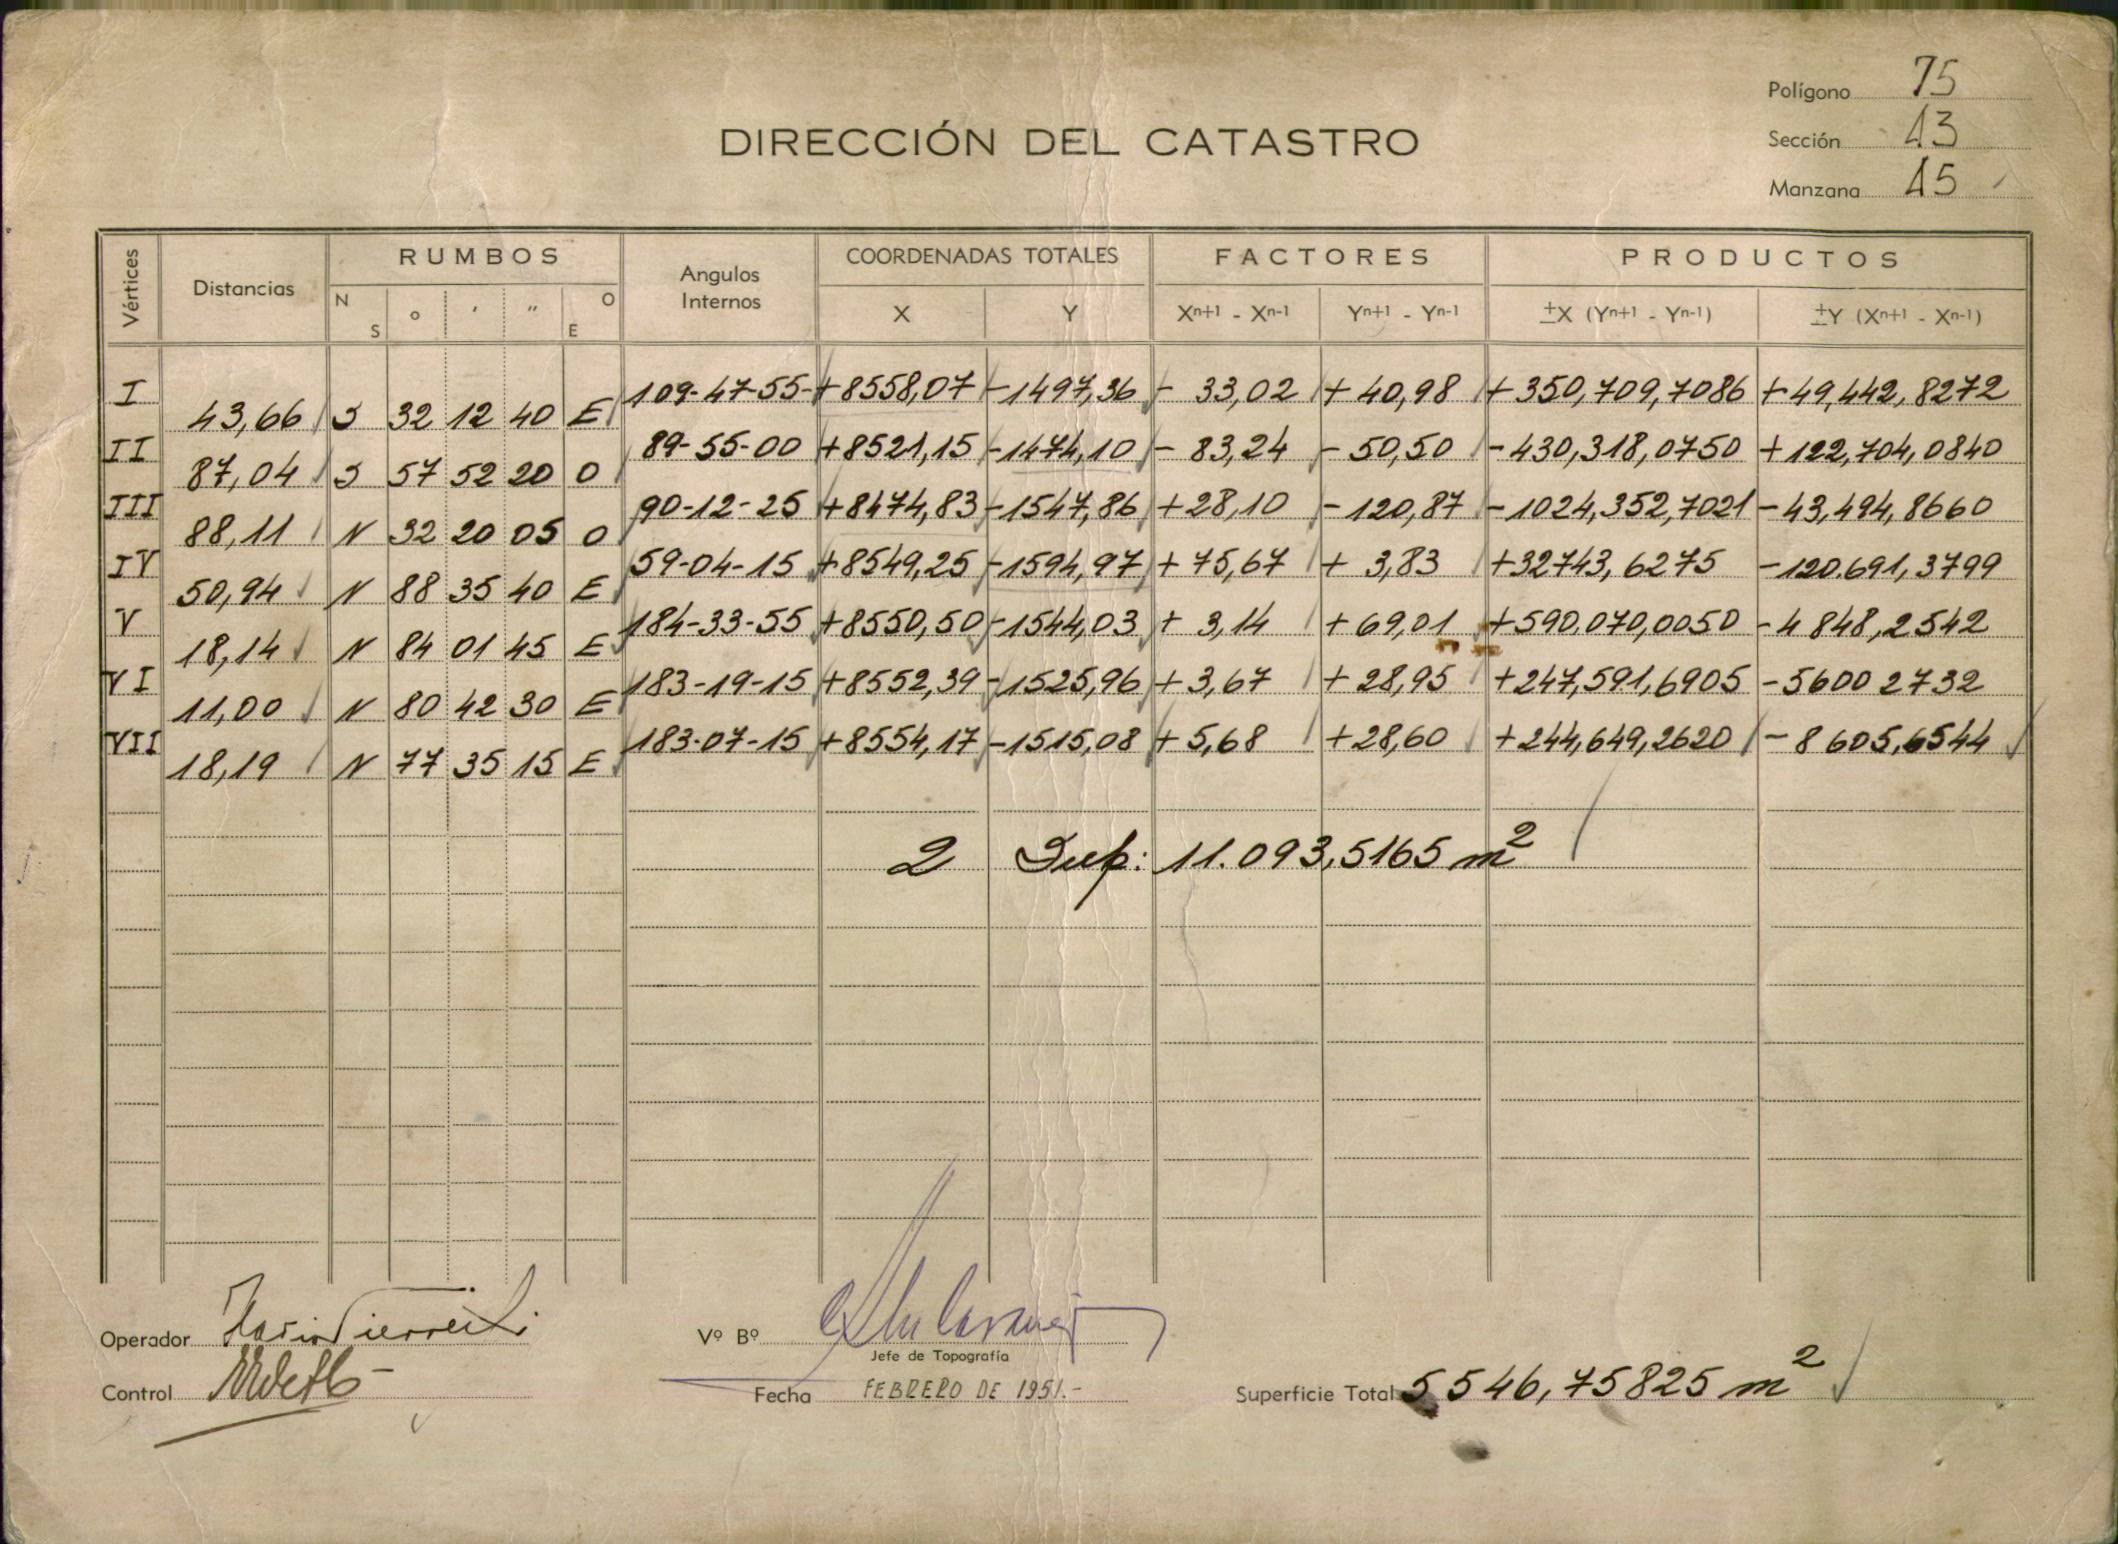 Polígono 75
DIRECCIÓN DEL CATASTRO
Sección 13
Manzana 15
Vértices Distancias RUMBOS Angulos Internos COORDENADAS TOTALES FACTORES PRODUCTOS
N S ° ' " O E X Y Xⁿ⁺¹ - Xⁿ⁻¹ Yⁿ⁺¹ - Yⁿ⁻¹ ±X (Yⁿ⁺¹ - Yⁿ⁻¹) ±Y (Xⁿ⁺¹ - Xⁿ⁻¹)
I 109-47-55- +8558,07 -1497,36 - 33,02 + 40,98 +350,709,7086 +49,442,8272
43,66 S 32 12 40 E
II 89-55-00 +8521,15 -1474,10 - 83,24 - 50,50 -430,318,0750 +122,704,0840
87,04 S 57 52 20 O
III 90-12-25 +8474,83 -1547,86 +28,10 -120,87 -1024,352,7021 -43,494,8660
88,11 N 32 20 05 O
IV 59-04-15 +8549,25 -1594,97 + 75,67 + 3,83 +32743,6275 -120.691,3799
50,94 N 88 35 40 E
V 184-33-55 +8550,50 -1544,03 + 3,14 +69,01 +590.070,0050 -4848,2542
18,14 N 84 01 45 E
VI 183-19-15 +8552,39 -1525,96 +3,67 +28,95 +247,591,6905 -56002732
11,00 N 80 42 30 E
VII 183-07-15 +8554,17 -1515,08 +5,68 +28,60 +244,649,2620 -8605,6544
18,19 N 77 35 15 E
2 Sup: 11.093,5165 m²
Operador
Vº Bº
Jefe de Topografía
Control
Fecha FEBRERO DE 1951.-
Superficie Total 5546,75825 m²